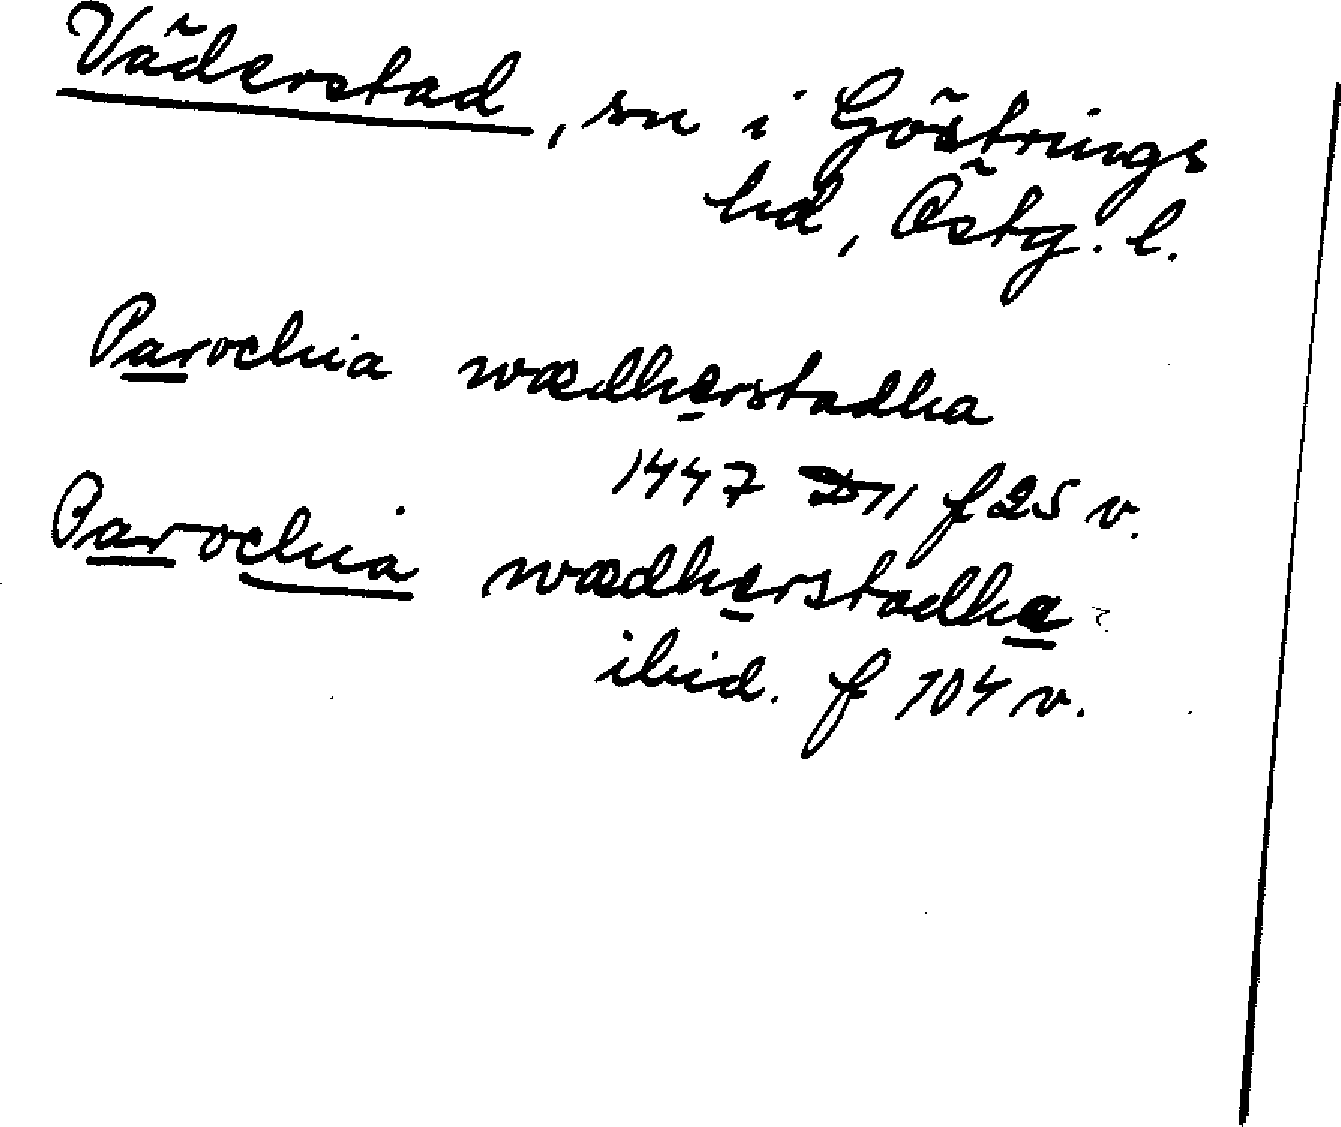 Väderstad, sn i Göstrings
hd, Östg. l.
Parochia wædherstadha
1447 D 11 f 25 v.
Parochia wædherstadha
ibid. f 104 v.